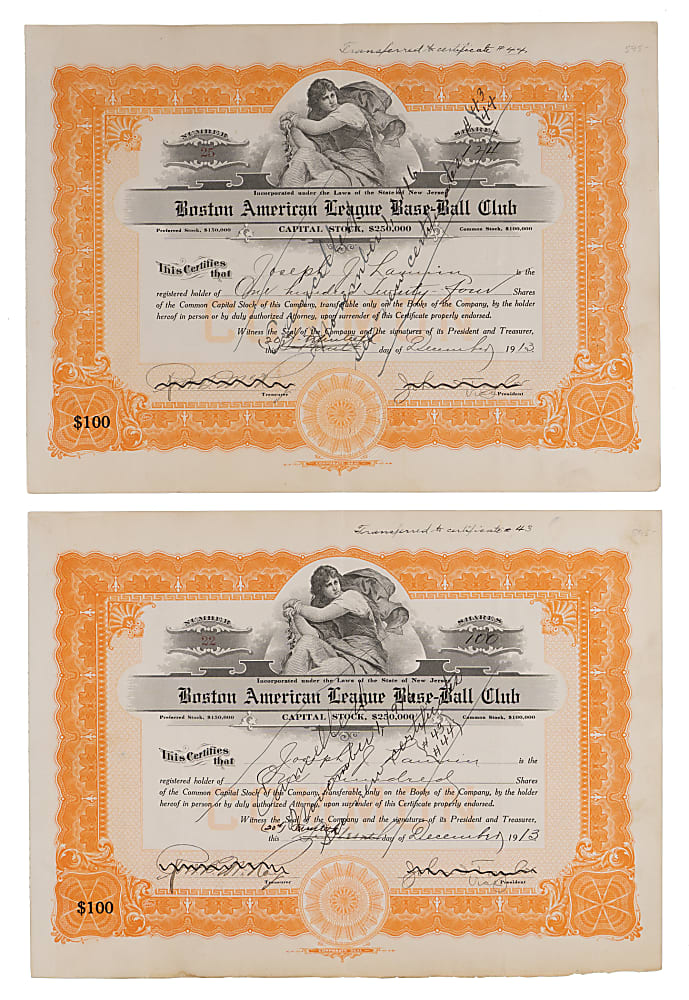 Transferred to certificate # 44
595-
NUMBER
25
SHARES
124
Incorporated under the Laws of the State of New Jersey
Boston American League Base-Ball Club
Preferred Stock, $150,000
CAPITAL STOCK, $250,000
Common Stock, $100,000
This Certifies that Joseph J. Lannin is the
registered holder of One hundred twenty-four Shares
of the Common Capital Stock of this Company, transferable only on the Books of the Company, by the holder
hereof in person or by duly authorized Attorney, upon surrender of this Certificate properly endorsed.
Witness the Seal of the Company and the signatures of its President and Treasurer,
this (20") Twentieth day of December 1913
Cancelled
November 1, 1916
# 43
44
Treasurer
President
CORPORATE SEAL
$100
Transferred to certificate # 43
NUMBER
22
SHARES
100
Incorporated under the Laws of the State of New Jersey
Boston American League Base-Ball Club
Preferred Stock, $150,000
CAPITAL STOCK, $250,000
Common Stock, $100,000
This Certifies that Joseph J. Lannin is the
registered holder of One hundred Shares
of the Common Capital Stock of this Company, transferable only on the Books of the Company, by the holder
hereof in person or by duly authorized Attorney, upon surrender of this Certificate properly endorsed.
Witness the Seal of the Company and the signatures of its President and Treasurer,
this (20") Twentieth day of December 1913
Cancelled
November 1, 1916
# 43
# 44
Treasurer
President
CORPORATE SEAL
$100